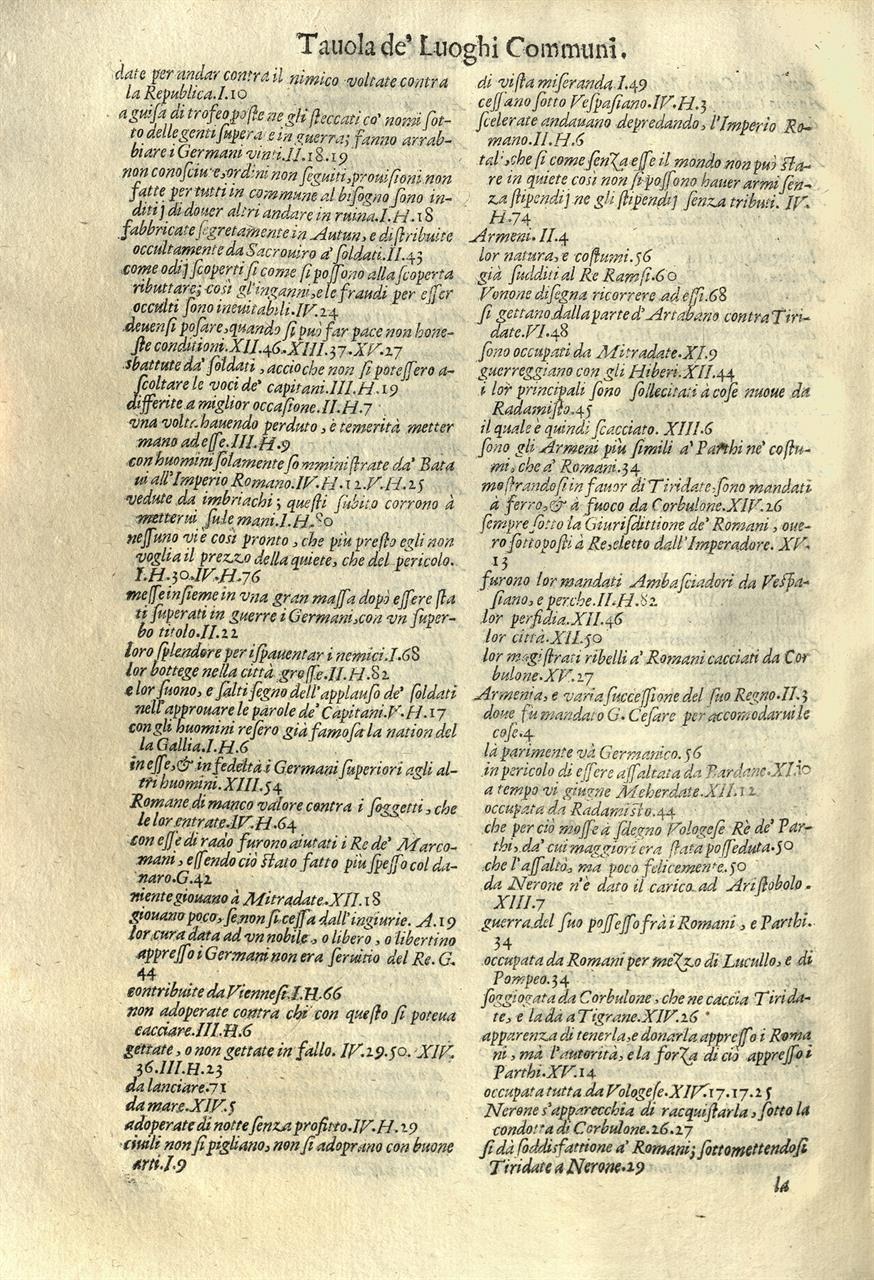 Tauola de' Luoghi Communi.
date per andar contra il nimico voltate contra
la Republica.I.10
a guisa di trofeo poste ne gli steccati co' nomi sot-
to delle genti superate in guerra; fanno arrab-
biare i Germani vinti.II.18.19
non conosciute, ordini non seguiti, prouisioni non
fatte per tutti in commune al bisogno sono in-
ditij di douer altri andare in ruina.I.H.18
fabbricate segretamente in Autun, e distribuite
occultamente da Sacrouiro a' soldati.II.43
come odij scoperti si come si possono alla scoperta
ributtare; così gl'inganni, e le fraudi per esser
occulti sono ineuitabili.IV.24
deuensi posare, quando si può far pace non hone-
ste conditioni.XII.46.XIII.37.XV.27
sbattute da' soldati, accioche non si potessero a-
scoltare le voci de' capitani.III.H.19
differite a miglior occasione.II.H.7
vna volta hauendo perduto, è temerità metter
mano ad esse.III.H.9
con huomini solamente somministrate da' Bata
ui all'Imperio Romano.IV.H.12.V.H.25
vedute da imbriachi; questi subito corrono à
metterui sù le mani.I.H.80
nessuno vi è così pronto, che più presto egli non
voglia il prezzo della quiete, che del pericolo.
I.H.30.IV.H.76
messe insieme in vna gran massa dopò essere sta
ti superati in guerre i Germani, con vn super-
bo titolo.II.22
loro splendore per ispauentar i nemici.I.68
lor bottege nella città grosse.II.H.82
e lor suono, e salti segno dell'applauso de' soldati
nell'approuare le parole de' Capitani.V.H.17
con gli huomini resero già famosa la nation del
la Gallia.I.H.6
in esse, & in fedeltà i Germani superiori agli al-
tri huomini.XIII.54
Romane di manco valore contra i soggetti, che
le lor entrate.IV.H.64
con esse di rado furono aiutati i Re de' Marco-
mani, essendo ciò stato fatto più spesso col da-
naro.G.42
niente giouano à Mitradate.XII.18
giouano poco, se non si cessa dall'ingiurie. A.19
lor cura data ad vn nobile, o libero, o libertino
appresso i Germani non era seruitio del Re. G.
44
contribuite da Viennesi.I.H.66
non adoperate contra chi con questo si poteua
cacciare.III.H.6
gettate, o non gettate in fallo. IV.29.50. XIV.
36.III.H.23
da lanciare.71
da mare.XIV.5
adoperate di notte senza profitto.IV.H.29
ciuili non si pigliano, non si adoprano con buone
arti.I.9
di vista miseranda I.49
cessano sotto Vespasiano.IV.H.3
scelerate andauano depredando, l'Imperio Ro-
mano.II.H.6
tali, che si come senza esse il mondo non può sta-
re in quiete così non si possono hauer armi sen-
za stipendij ne gli stipendij senza tributi. IV.
H.74
Armeni. II.4
lor natura, e costumi.56
già sudditi al Re Ramsi.60
Vonone disegna ricorrere ad essi.68
si gettano dalla parte d'Artabano contra Tiri-
date.VI.48
sono occupati da Mitradate.XI.9
guerreggiano con gli Hiberi.XII.44
i lor principali sono sollecitati à cose nuoue da
Radamisto.45
il quale è quindi scacciato. XIII.6
sono gli Armeni più simili a' Parthi ne' costu-
mi, che a' Romani.34
mostrandosi in fauor di Tiridate, sono mandati
à ferro, & à fuoco da Corbulone.XIV.26
sempre sotto la Giurisdittione de' Romani, oue-
ro sottoposti à Re, eletto dall'Imperadore. XV.
13
furono lor mandati Ambasciadori da Vespa-
siano, e perche.II.H.82
lor perfidia.XII.46
lor città.XII.50
lor magistrati ribelli a' Romani cacciati da Cor
bulone.XV.27
Armenia, e varia successione del suo Regno.II.3
doue fu mandato G. Cesare per accomodarui le
cose.4
là parimente và Germanico.56
in pericolo di essere assaltata da Bardane.XI.10
a tempo vi giugne Meherdate.XII.12
occupata da Radamisto.44
che per ciò mosse à sdegno Vologese Rè de' Par-
thi, da' cui maggiori era stata posseduta.50
che l'assaltò, ma poco felicemente.50
da Nerone n'è dato il carico ad Aristobolo.
XIII.7
guerra del suo possesso frà i Romani, e Parthi.
34
occupata da Romani per mezzo di Lucullo, e di
Pompeo.34
soggiogata da Corbulone, che ne caccia Tirida-
te, e la dà a Tigrane.XIV.26
apparenza di tenerla, e donarla appresso i Roma
ni, mà l'autorità, e la forza di ciò appresso i
Parthi.XV.14
occupata tutta da Vologese.XIV.17.17.25
Nerone s'apparecchia di racquistarla, sotto la
condotta di Corbulone.26.27
si dà soddisfattione a' Romani; sottomettendosi
Tiridate a Nerone.29
la